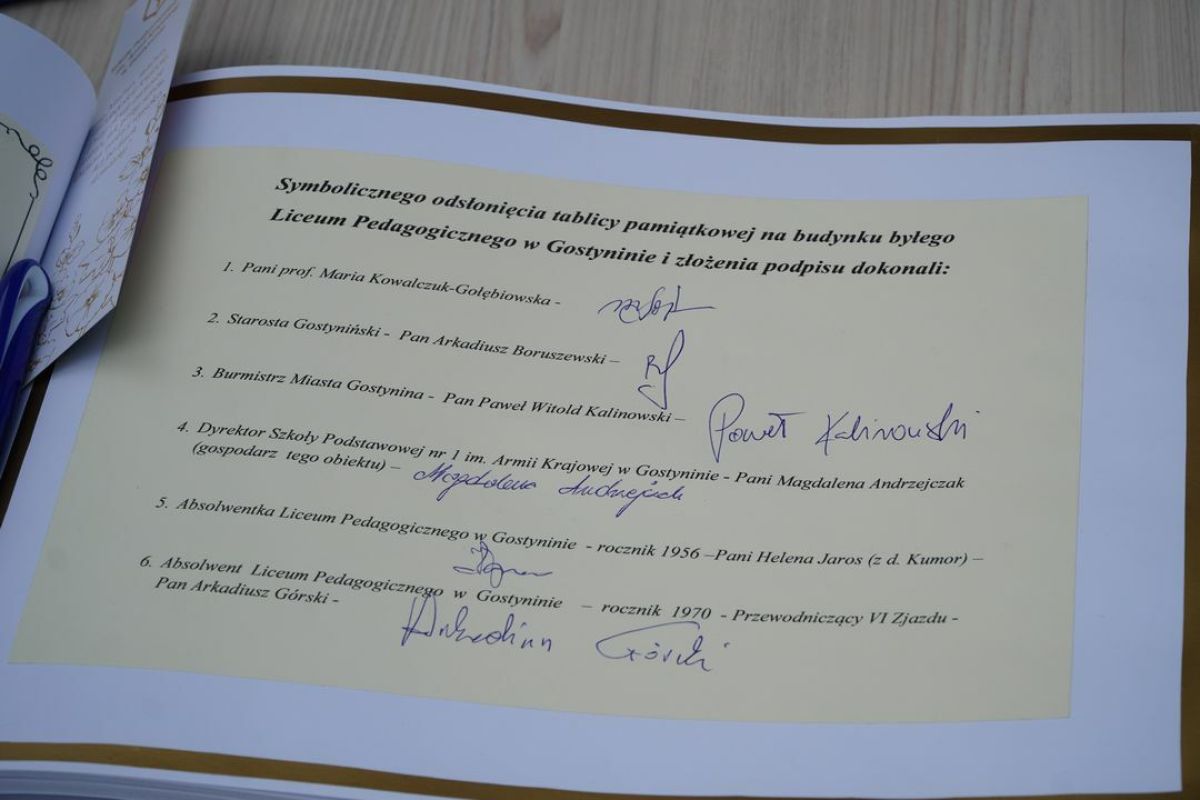 Symbolicznego odsłonięcia tablicy pamiątkowej na budynku byłego
Liceum Pedagogicznego w Gostyninie i złożenia podpisu dokonali:
1. Pani prof. Maria Kowalczuk-Gołębiowska -
2. Starosta Gostyniński - Pan Arkadiusz Boruszewski –
3. Burmistrz Miasta Gostynina - Pan Paweł Witold Kalinowski – Paweł Kalinowski
4. Dyrektor Szkoły Podstawowej nr 1 im. Armii Krajowej w Gostyninie - Pani Magdalena Andrzejczak
(gospodarz tego obiektu) – Magdalena Andrzejczak
5. Absolwentka Liceum Pedagogicznego w Gostyninie - rocznik 1956 –Pani Helena Jaros (z d. Kumor) –
6. Absolwent Liceum Pedagogicznego w Gostyninie – rocznik 1970 - Przewodniczący VI Zjazdu -
Pan Arkadiusz Górski - Arkadiusz Górski